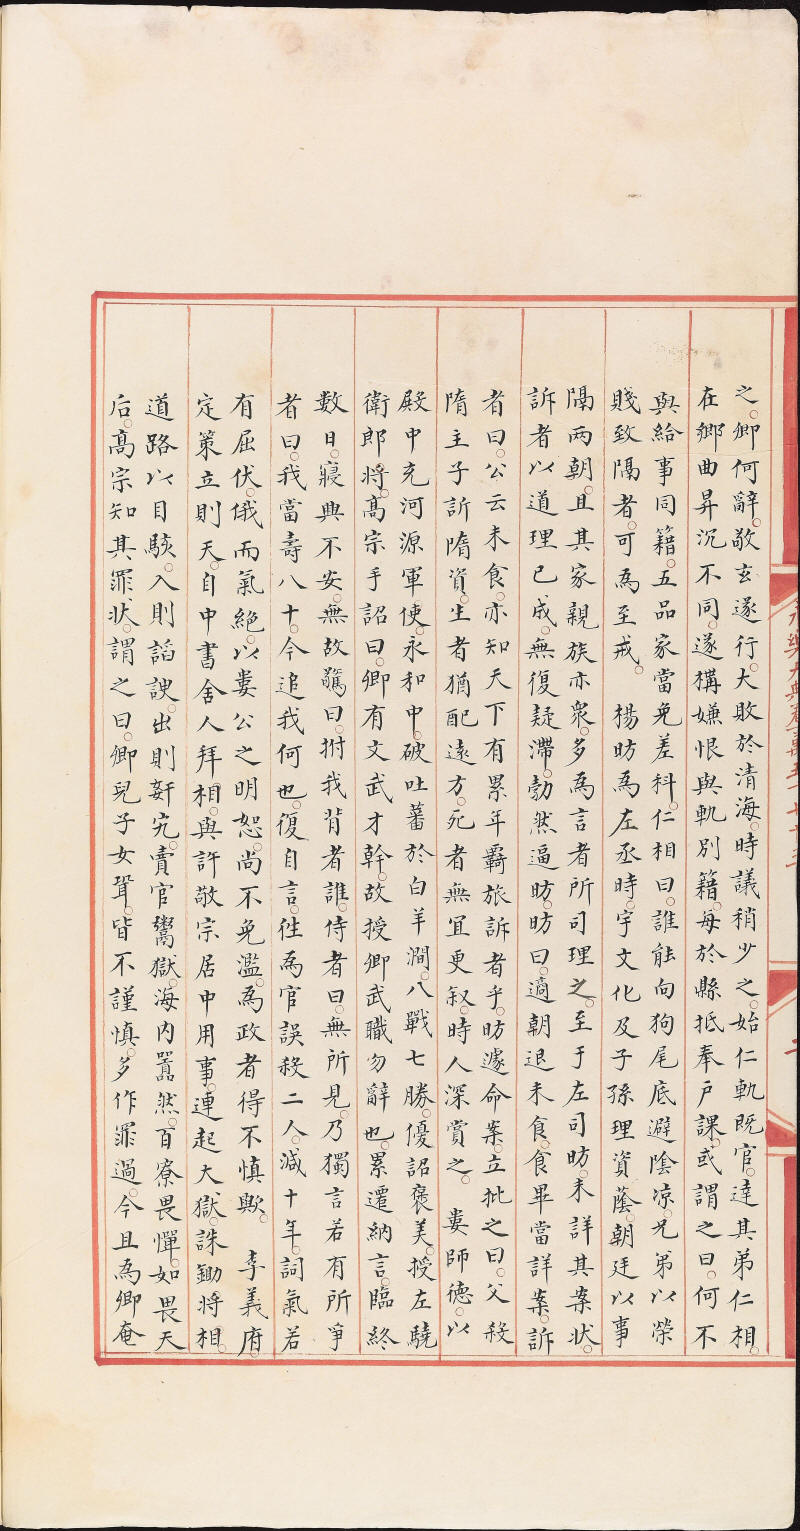 之。卿何辭。敬玄遂行。大敗於清海。時議稍少之。始仁軌既官。達其弟仁相。
在鄉曲昇沉不同。遂搆嫌恨與軌別籍。每於縣抵奉户課。或謂之曰。何不
與給事同籍。五品家當免差科。仁相曰。誰能向狗尾底避陰凉。兄弟以榮
賤致隔者。可為至戒。 楊昉為左丞時。宇文化及子孫理資蔭。朝廷以事
隔兩朝。且其家親族亦衆。多為言者所司理之。至于左司昉。未詳其案狀。
訴者以道理已成。無復疑滯。勃然逼昉。昉曰。適朝退未食。食畢當詳案。訴
者曰。公云未食。亦知天下有累年羇旅訴者乎。昉遽命案。立批之曰。父殺
隋主子訢隋資。生者猶配遠方。死者無宜更叙。時人深賞之。 婁師德。以
殿中充河源軍使。永和中。破吐蕃於白羊澗。八戰七勝。優詔褒美。授左驍
衛郎將。髙宗手詔曰。卿有文武才幹。故授卿武職勿辭也。累遷納言。臨終
數日。寢興不安。無故驚曰。拊我背者誰。侍者曰。無所見。乃獨言若有所爭
者曰。我當壽八十。今追我何也。復自言。徃為官誤殺二人。減十年。詞氣若
有屈伏。俄而氣絶。以婁公之明恕。尚不免濫。為政者得不慎歟。 李義府。
定策立則天。自中書舍人拜相。與許敬宗居中用事。連起大獄。誅鋤將相。
道路以目駭。入則諂諛。出則姧宄。賣官鬻獄。海内嚻然。百寮畏憚。如畏天
后。髙宗知其罪狀。謂之曰。卿兒子女聟。皆不謹慎。多作罪過。今且為卿奄